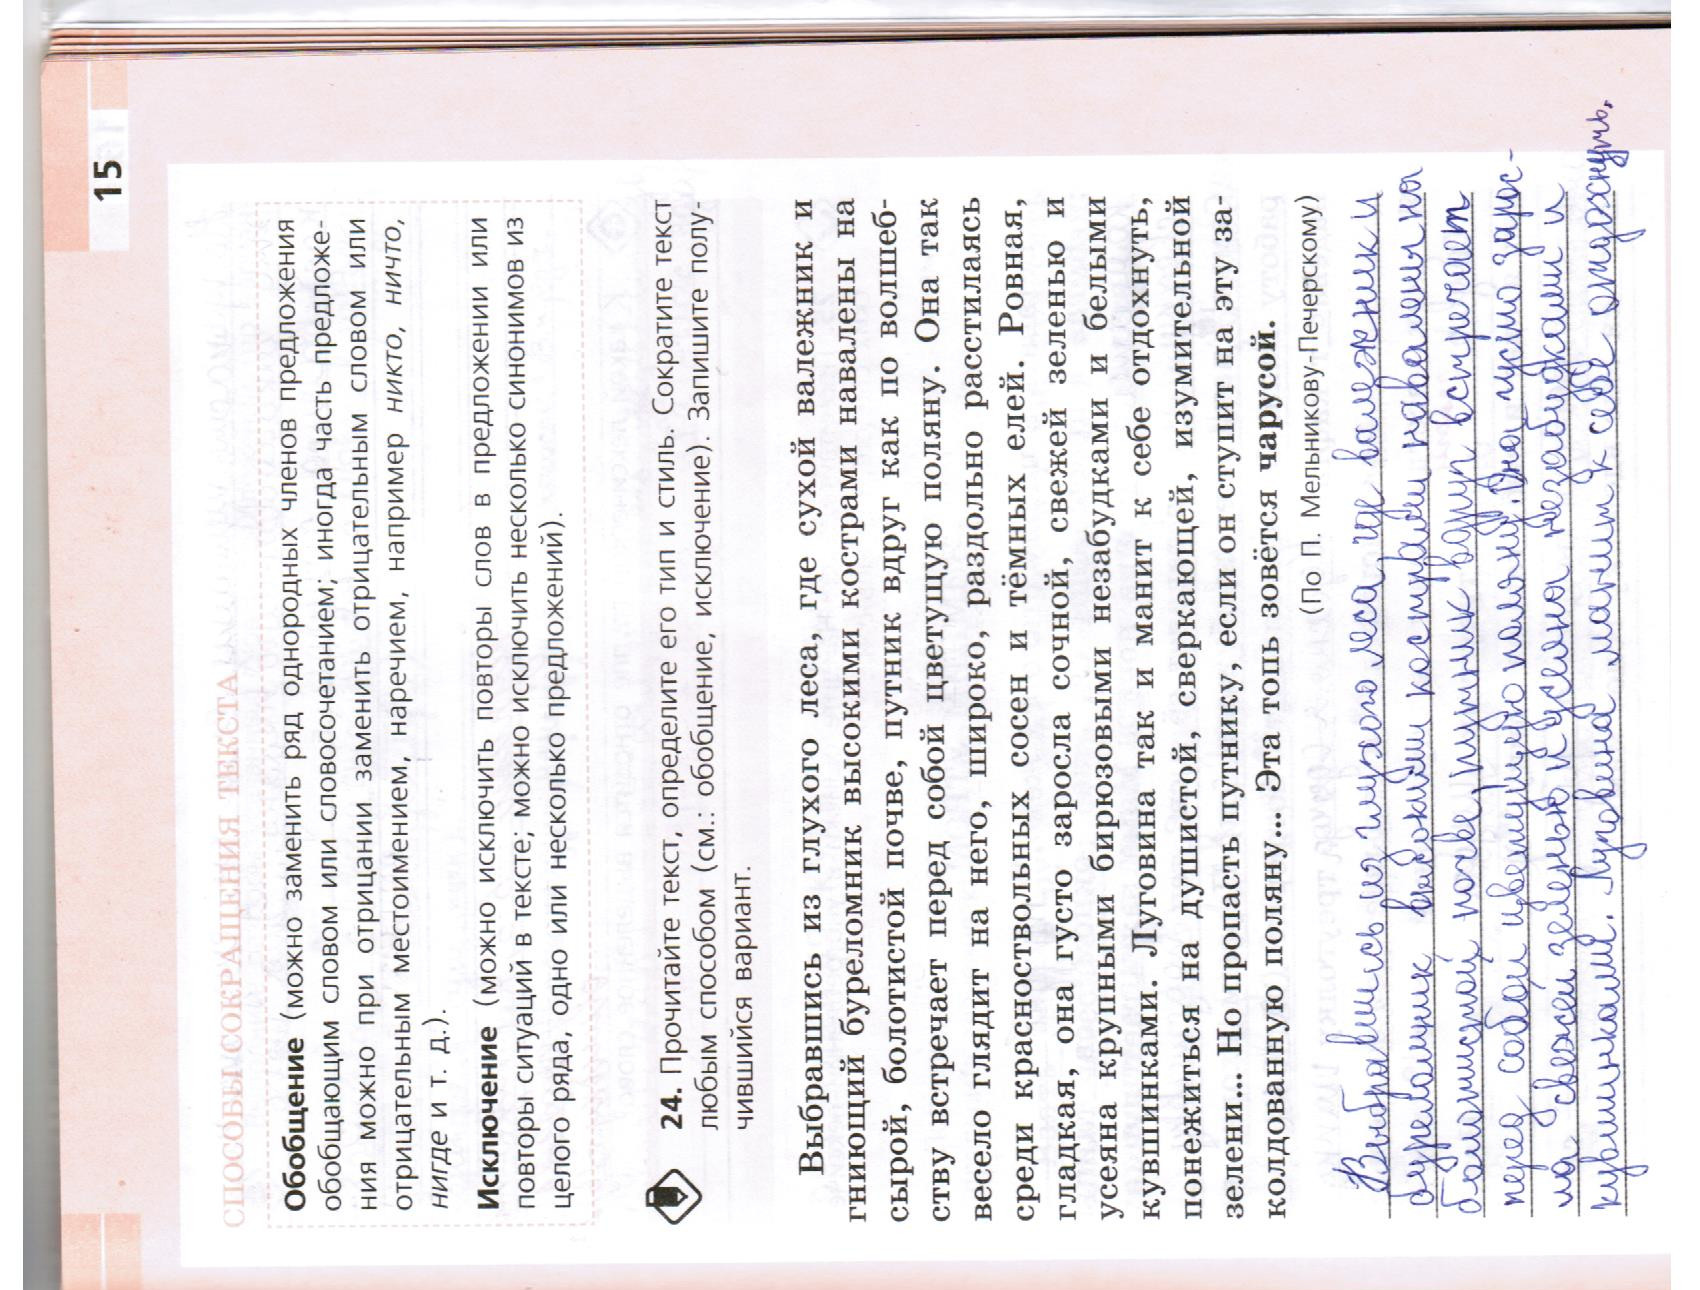 15
СПОСОБЫ СОКРАЩЕНИЯ ТЕКСТА
Обобщение (можно заменить ряд однородных членов предложения
обобщающим словом или словосочетанием; иногда часть предложе-
ния можно при отрицании заменить отрицательным словом или
отрицательным местоимением, наречием, например никто, ничто,
нигде и т. д.).
Исключение (можно исключить повторы слов в предложении или
повторы ситуаций в тексте; можно исключить несколько синонимов из
целого ряда, одно или несколько предложений).
24. Прочитайте текст, определите его тип и стиль. Сократите текст
любым способом (см.: обобщение, исключение). Запишите полу-
чившийся вариант.
Выбравшись из глухого леса, где сухой валежник и
гниющий буреломник высокими кострами навалены на
сырой, болотистой почве, путник вдруг как по волшеб-
ству встречает перед собой цветущую поляну. Она так
весело глядит на него, широко, раздольно расстилаясь
среди красноствольных сосен и тёмных елей. Ровная,
гладкая, она густо заросла сочной, свежей зеленью и
усеяна крупными бирюзовыми незабудками и белыми
кувшинками. Луговина так и манит к себе отдохнуть,
понежиться на душистой, сверкающей, изумительной
зелени... Но пропасть путнику, если он ступит на эту за-
колдованную поляну... Эта топь зовётся чарусой.
(По П. Мельникову-Печерскому)
Выбравшись из глухого леса, где валежник и
высокими кострами навалены на
болотистой почве, путник вдруг встречает
перед собой цветущую поляну. Она густо зарос-
ла свежей зеленью и усеяна незабудками и
кувшинками. Луговина манит к себе отдохнуть.